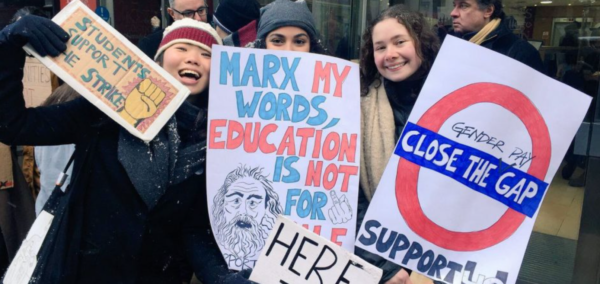 STUDENTS
SUPPORT
THE STRIKE
MARX MY
WORDS,
EDUCATION
IS NOT
FOR
HERE
GENDER PAY
CLOSE THE GAP
SUPPORT